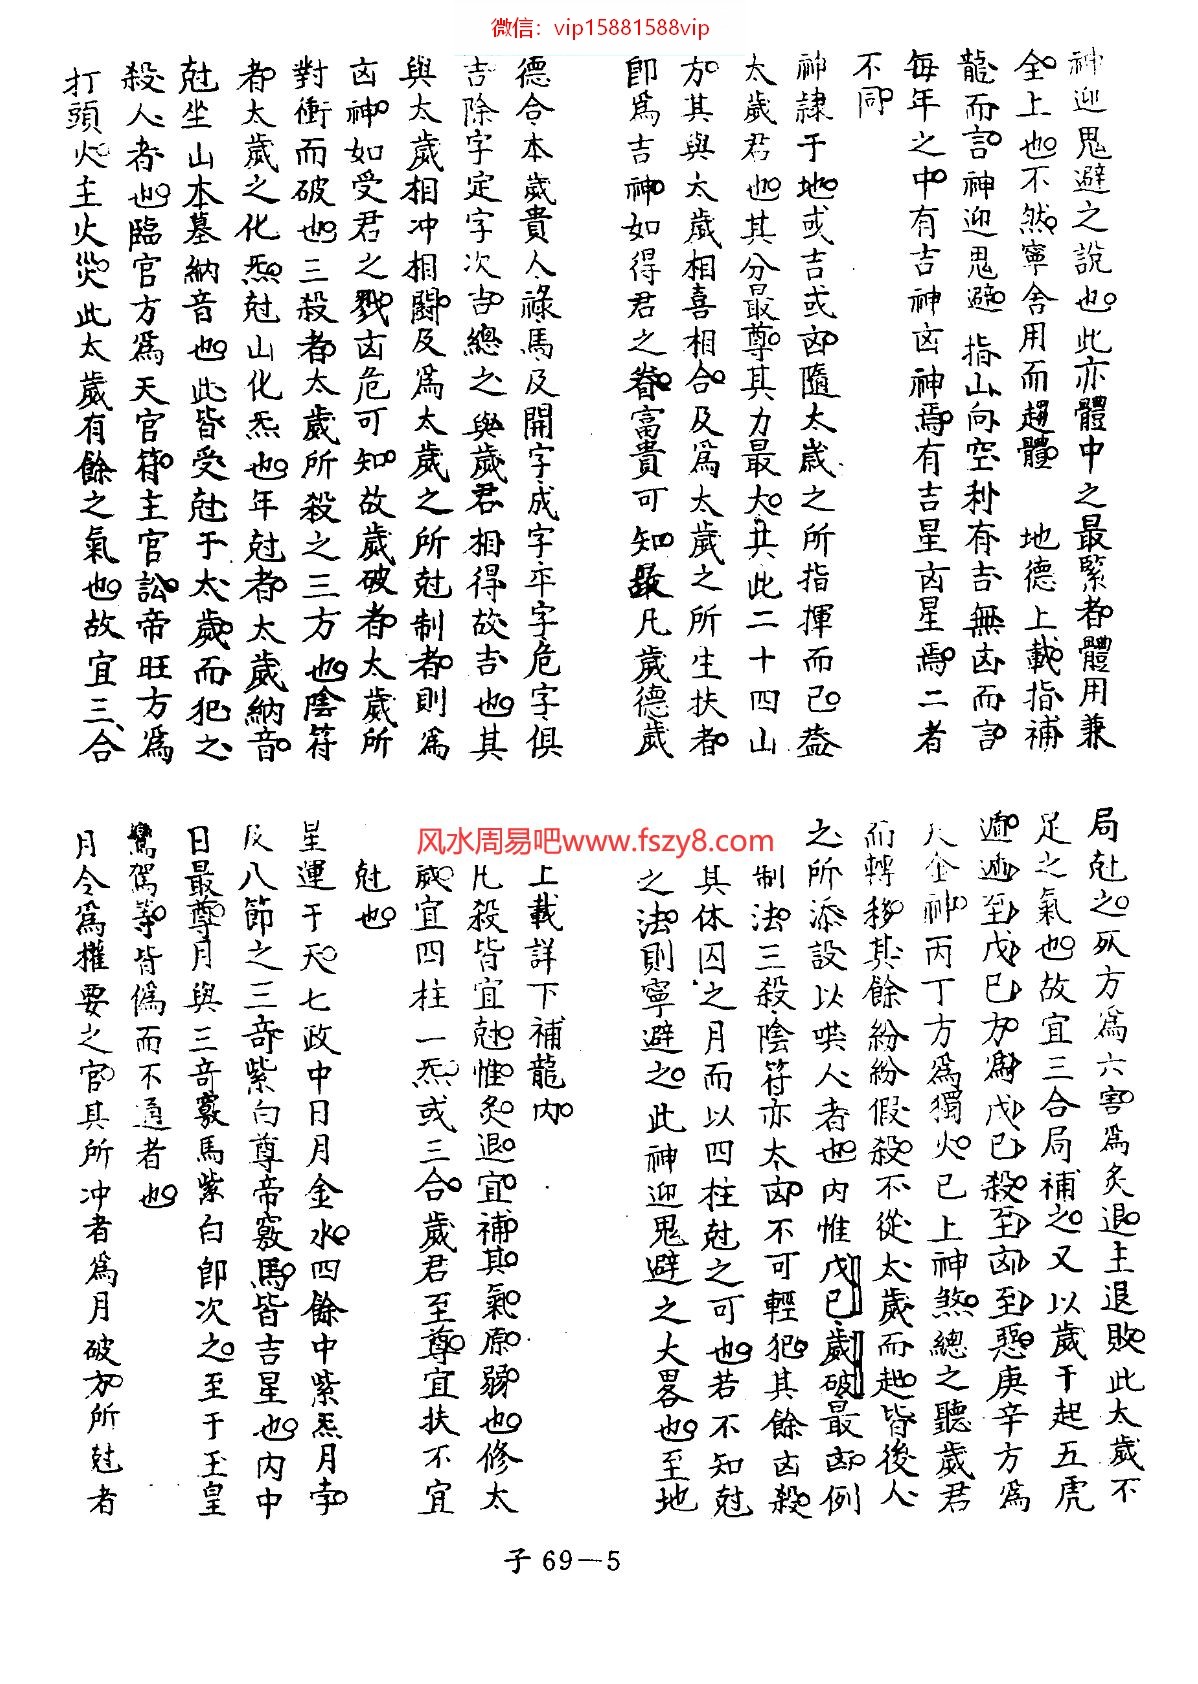 微信：vip15881588vip
神迎鬼避之說也此亦體中之最緊者體用兼
全上也不然寧舍用而趨體　地德上載指補
龍而言神迎鬼避指山向空利有吉無凶而言
每年之中有吉神凶神焉有吉星凶星焉二者
不同
神隷于地或吉或凶隨太歲之所指揮而已葢
太歲君也其分最尊其力最大其此二十四山
方其與太歲相喜相合及爲太歲之所生扶者
卽爲吉神如得君之眷富貴可知故凡歲德歲
德合本歲貴人祿馬及開字成字平字危字俱
吉除字定字次吉總之與歲君相得故吉也其
與太歲相冲相鬭及爲太歲之所尅制者則爲
凶神如受君之戮凶危可知故歲破者太歲所
對衝而破也三殺者太歲所殺之三方也陰符
者太歲之化炁尅山化炁也年尅者太歲納音
尅坐山本墓納音也此皆受尅于太歲而犯之
殺人者也臨官方爲天官符主官訟帝旺方爲
打頭火主火災此太歲有餘之氣也故宜三合
局尅之死方爲六害爲炙退主退敗此太歲不
足之氣也故宜三合局補之又以歲干起五虎
遁遁至戊巳方爲戊巳殺至凶至惡庚辛方爲
天金神丙丁方爲獨火已上神煞總之聽歲君
而轉移其餘紛紛假殺不從太歲而起皆後人
之所添設以哄人者也内惟戊巳歲破最凶例
制法三殺陰符亦太凶不可輕犯其餘凶殺
其休囚之月而以四柱尅之可也若不知尅
之法則寧避之此神迎鬼避之大畧也至地
上載詳下補龍内
凡殺皆宜尅惟炙退宜補其氣原弱也修太
歲宜四柱一炁或三合歲君至尊宜扶不宜
尅也
星運于天七政中日月金水四餘中紫炁月孛
及八節之三奇紫白尊帝竅馬皆吉星也内中
日最尊月與三奇竅馬紫白卽次之至于玉皇
鸞駕等皆僞而不通者也
月令爲權要之官其所冲者爲月破方所尅者
风水周易吧www.fszy8.com
子 69－5